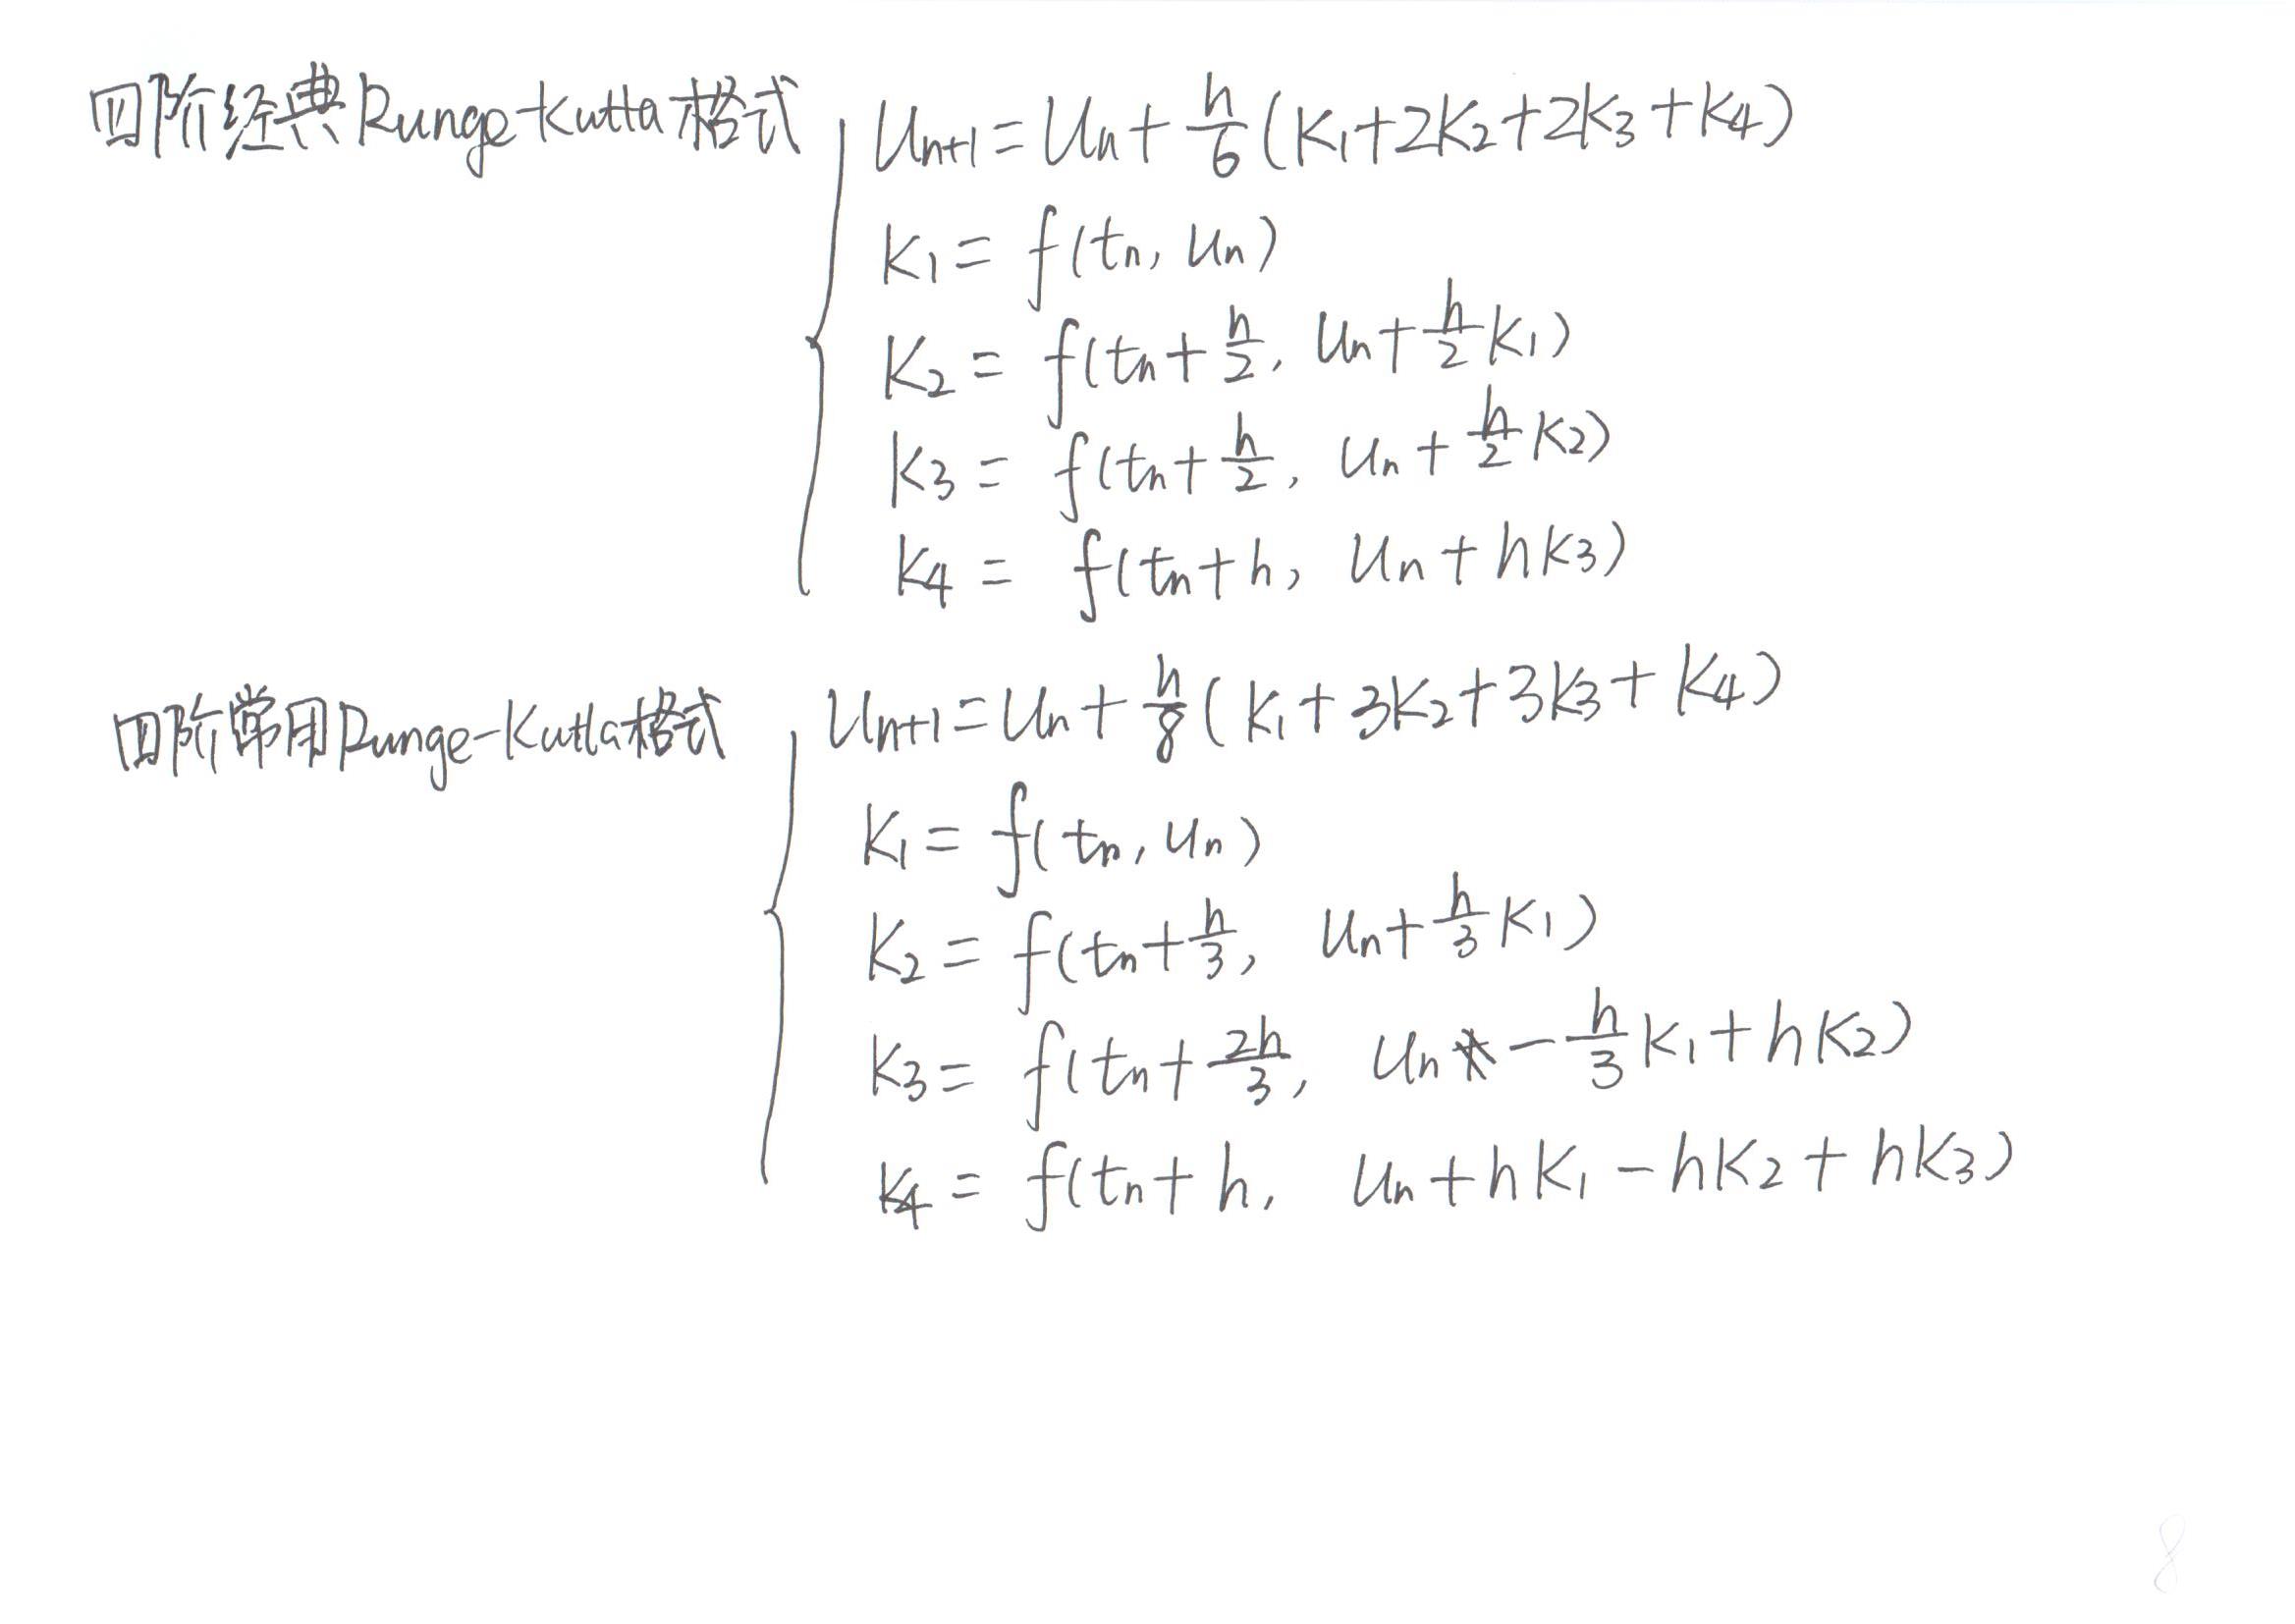 四阶经典Runge-Kutta格式 { U_{n+1} = U_n + \frac{h}{6}(K_1+2K_2+2K_3+K_4)
K_1 = f(t_n, U_n)
K_2 = f(t_n+\frac{h}{2}, U_n+\frac{h}{2}K_1)
K_3 = f(t_n+\frac{h}{2}, U_n+\frac{h}{2}K_2)
K_4 = f(t_n+h, U_n+hK_3)
四阶常用Runge-Kutta格式 { U_{n+1} = U_n + \frac{h}{8}(K_1+3K_2+3K_3+K_4)
K_1 = f(t_n, U_n)
K_2 = f(t_n+\frac{h}{3}, U_n+\frac{h}{3}K_1)
K_3 = f(t_n+\frac{2h}{3}, U_n-\frac{h}{3}K_1+hK_2)
K_4 = f(t_n+h, U_n+hK_1-hK_2+hK_3)
8